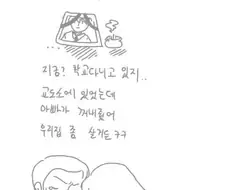 지금? 학교다니고 있지..
교도소에 있었는데
아빠가 꺼내줬어
우리집 좀 살거든 ㅋㅋ